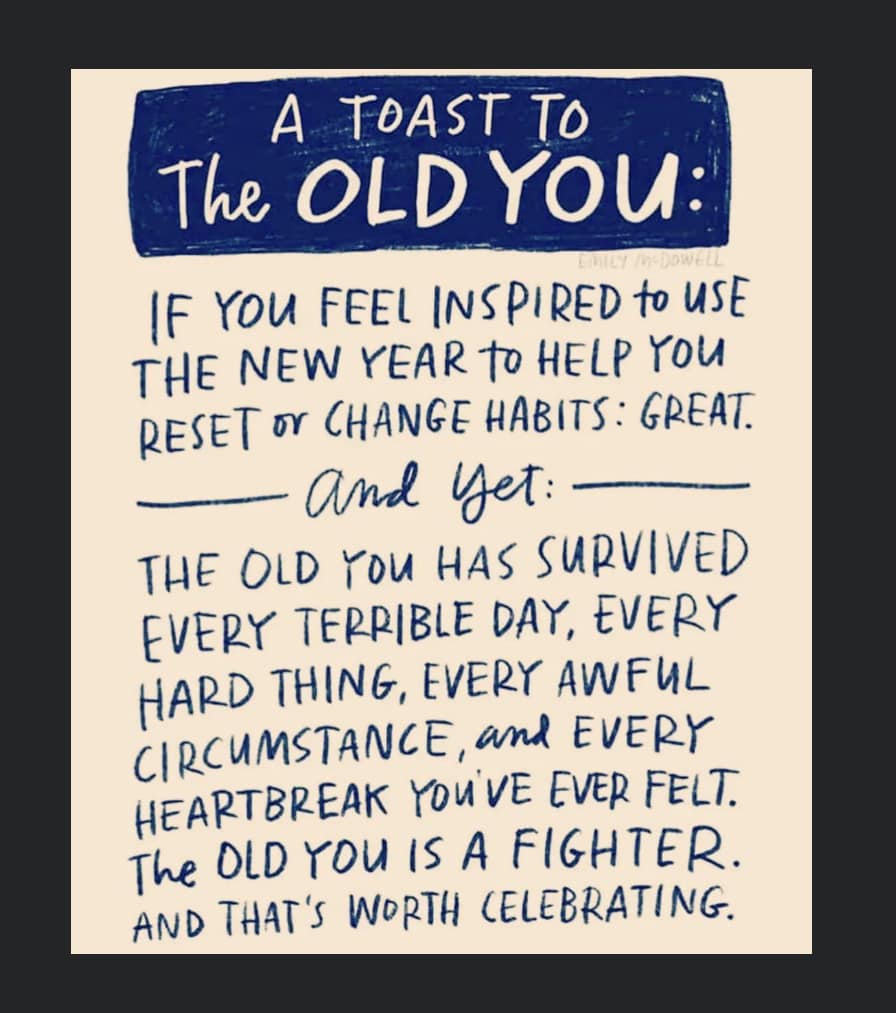 A TOAST TO
The OLD YOU:
EMILY McDOWELL
IF YOU FEEL INSPIRED to USE
THE NEW YEAR to HELP YOU
RESET or CHANGE HABITS: GREAT.
and yet:
THE OLD YOU HAS SURVIVED
EVERY TERRIBLE DAY, EVERY
HARD THING, EVERY AWFUL
CIRCUMSTANCE, and EVERY
HEARTBREAK YOU'VE EVER FELT.
The OLD YOU IS A FIGHTER.
AND THAT'S WORTH CELEBRATING.